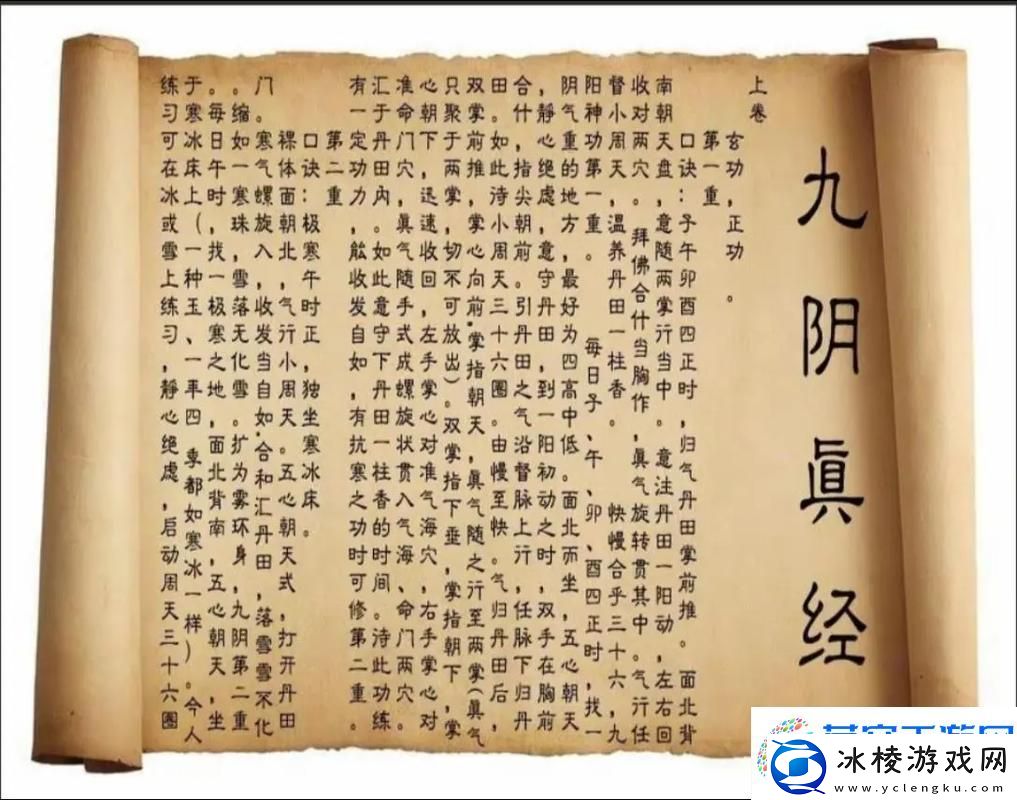 九阴眞经
上卷
玄功，正功。
第一重
口诀：子午卯酉四正时，归气丹田掌前推。面北背
南朝天盘，意随两掌行当中。意注丹田一阳动，左右回
收对两穴。拜佛合什当胸作，眞气旋转贯其中。气行任
督小周天，温养丹田一柱香。快慢合乎三十六，九
阳神功第一重。每日子、午、卯、酉四正时，找一
阴气重的地方，最好为四高中低。面北而坐，五心朝天
，静心绝虑，意守丹田，到一阳初动之时，双手在胸前
合什，指尖朝前。引丹田之气沿督脉上行，任脉下归丹
田。如此待小周天三十六圈。由慢至快。气归丹田后，
双掌前推，掌心向前.掌指朝天，眞气随之行至两掌(眞气
只聚于两掌，切不可放出)。双掌指下垂，掌指朝下，掌
心朝下，迅速收回，左手掌心对准气海穴，右手掌心对
准命门穴，眞气随手式成螺旋状贯入气海、命门两穴。
汇于丹田内。如此意守下丹田一柱香的时间。待此功练
有一定功力，能收发自如，有抗寒之功时可修第二重。
第二重
口诀：极寒午时正，独坐寒冰床。
裸体面朝北，气行小周天。五心朝天式，打开丹田
门。寒气螺旋入，收发当自如.合和汇丹田，落雪雪不化
。缩如一寒珠，雪落无化雪。扩为雾环身，九阴第二重
。每日午时，找一极寒之地，面北背南，五心朝天，坐
于寒冰床上(一种玉、一年四季都如寒冰一样)。今人
练习可在冰或雪上练习，静心绝虑，启动周天三十六圈
冰棱游戏网
www.yclengku.com